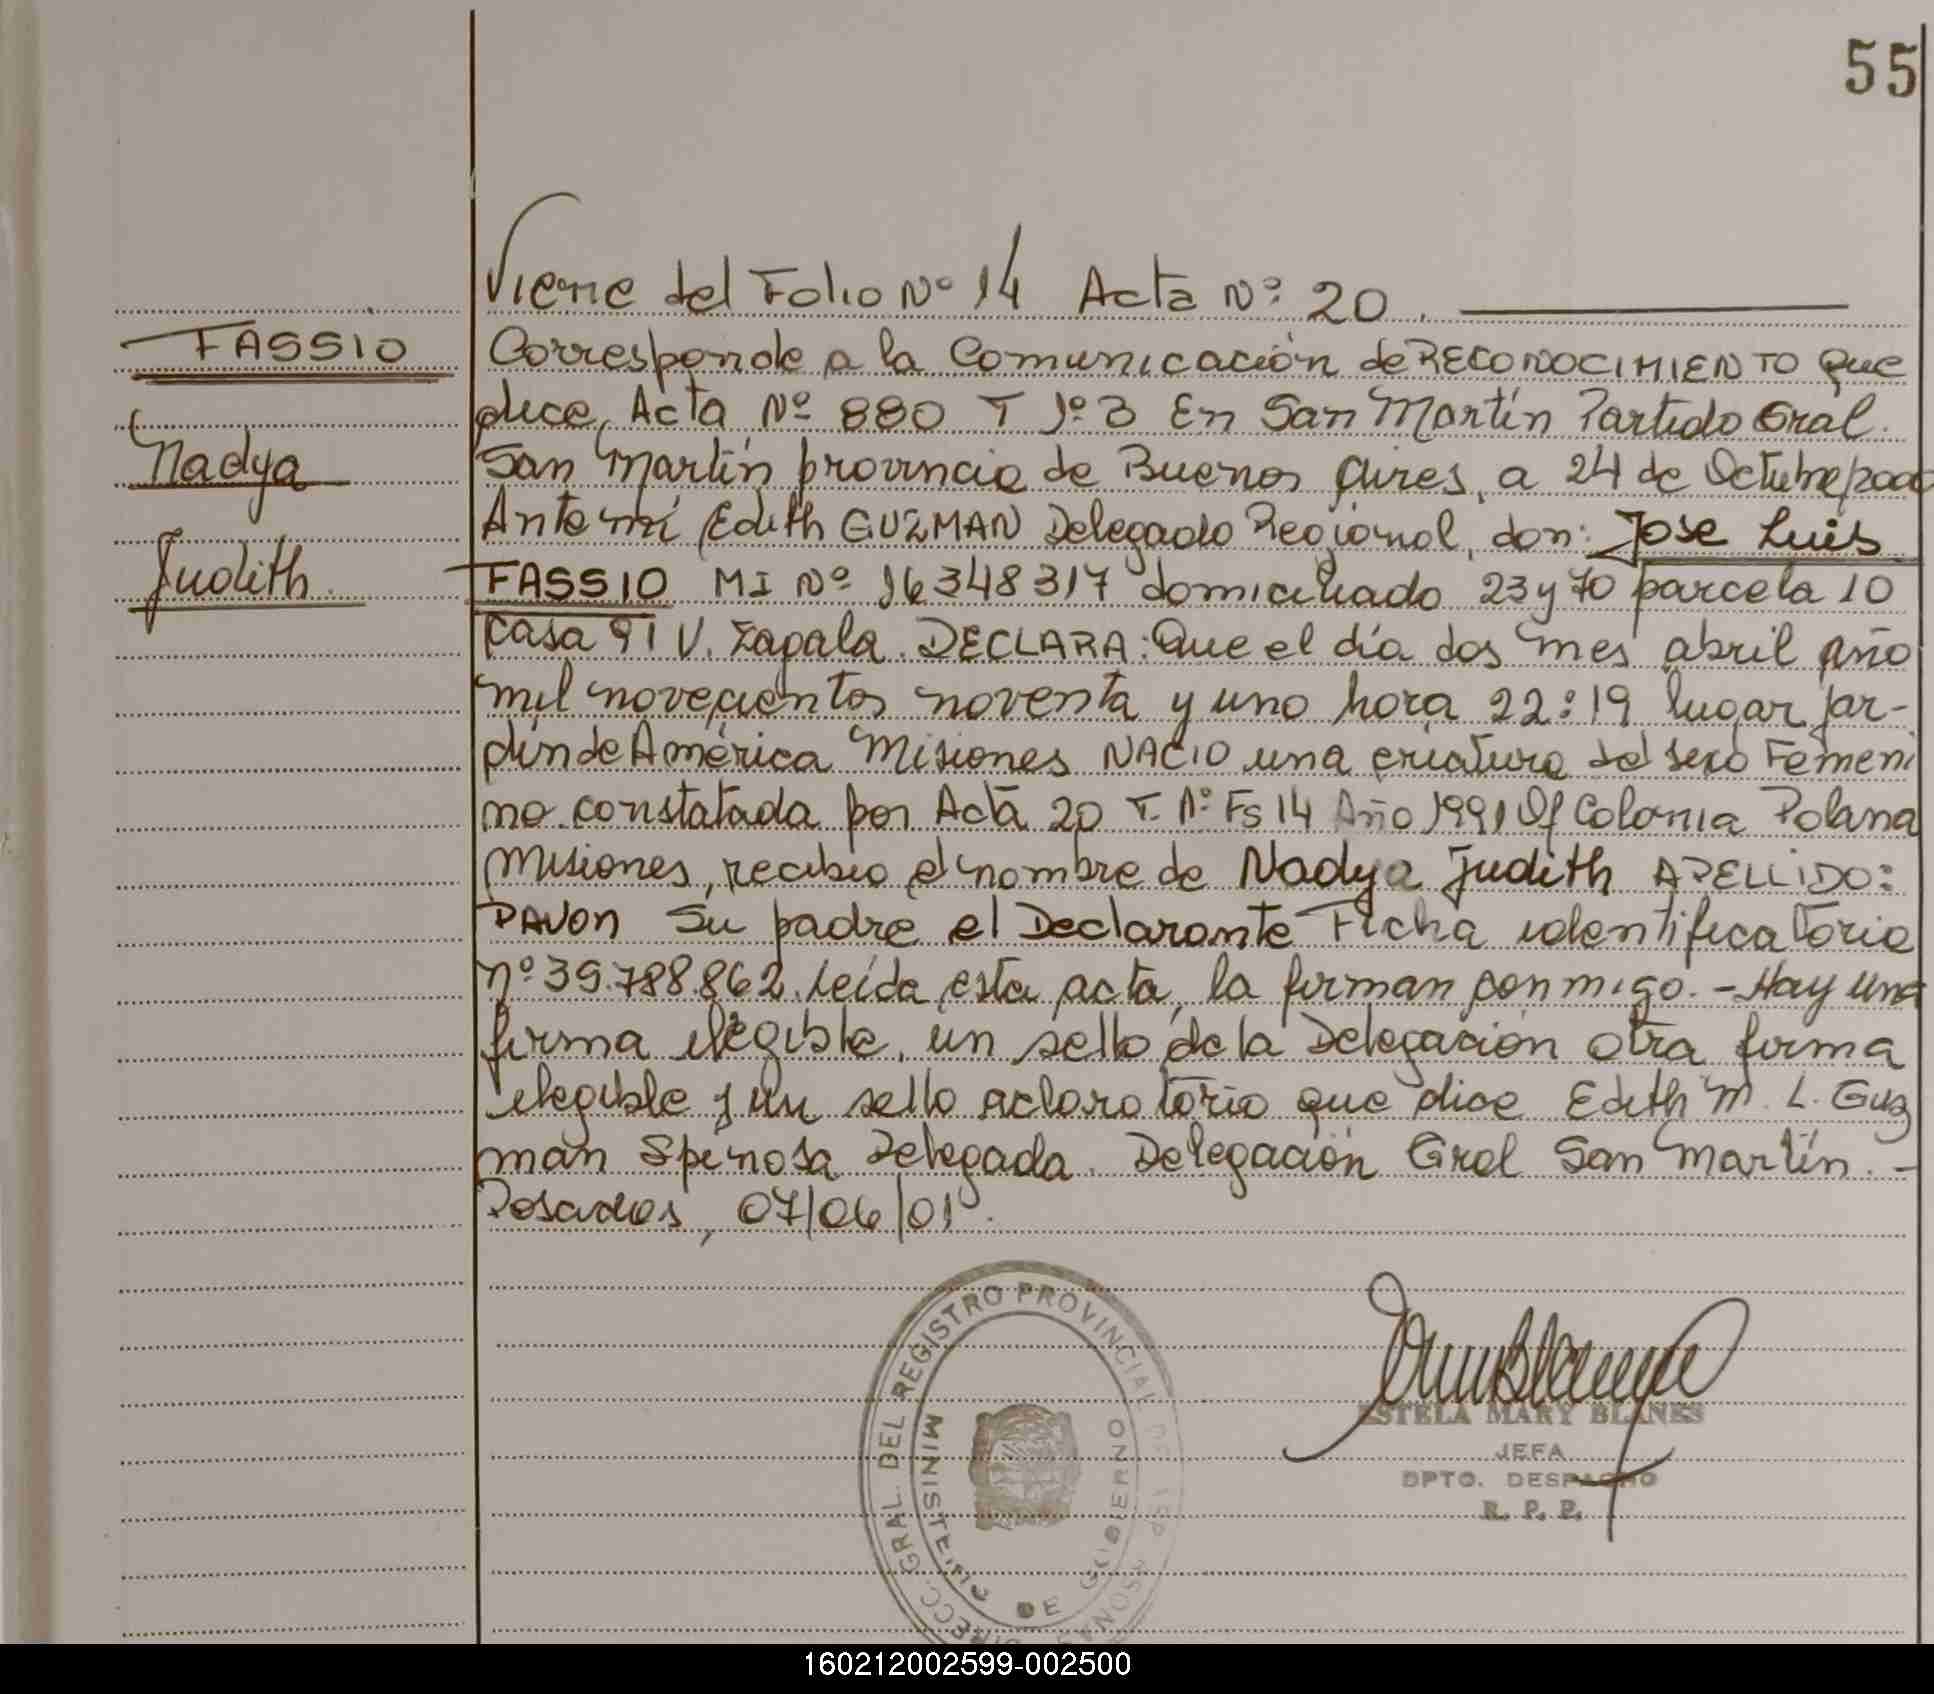 55
Viene del Folio Nº 14 Acta Nº 20.
FASSIO
Corresponde a la Comunicación de RECONOCIMIENTO que
dice, Acta Nº 880 T 1º B En San Martín Partido Gral.
Nadya
San Martín provincia de Buenos Aires, a 24 de Octubre 2000
Judith
Ante mí Edith GUZMAN Delegado Regional, don: Jose Luis
FASSIO MI Nº 16348317 domiciliado 23 y 70 parcela 10
casa 91 V. Zagala. DECLARA: Que el día dos mes abril año
mil novecientos noventa y uno hora 22:19 lugar Jar-
dín de América Misiones NACIO una criatura del sexo Femeni
no constatada por Acta 20 T. Aº Fs 14 Año 1991 Of Colonia Polana
Misiones, recibio el nombre de Nadya Judith APELLIDO:
PAVON Su padre el Declarante Ficha identificatoria
nº 39.788.862. Leída esta acta, la firman conmigo. - Hay una
firma ilegible, un sello de la Delegación otra firma
ilegible y un sello acloratorio que dice Edith M. L. Guz
man Spinosa Delegada. Delegación Gral San Martín. -
Posadas, 07/06/01.
DIRECC. GRAL. DEL REGISTRO PROVINCIAL
MINISTERIO DE GOBIERNO
ESTELA MARY BLANES
JEFA
DPTO. DESPACHO
R. P. P.
160212002599-002500